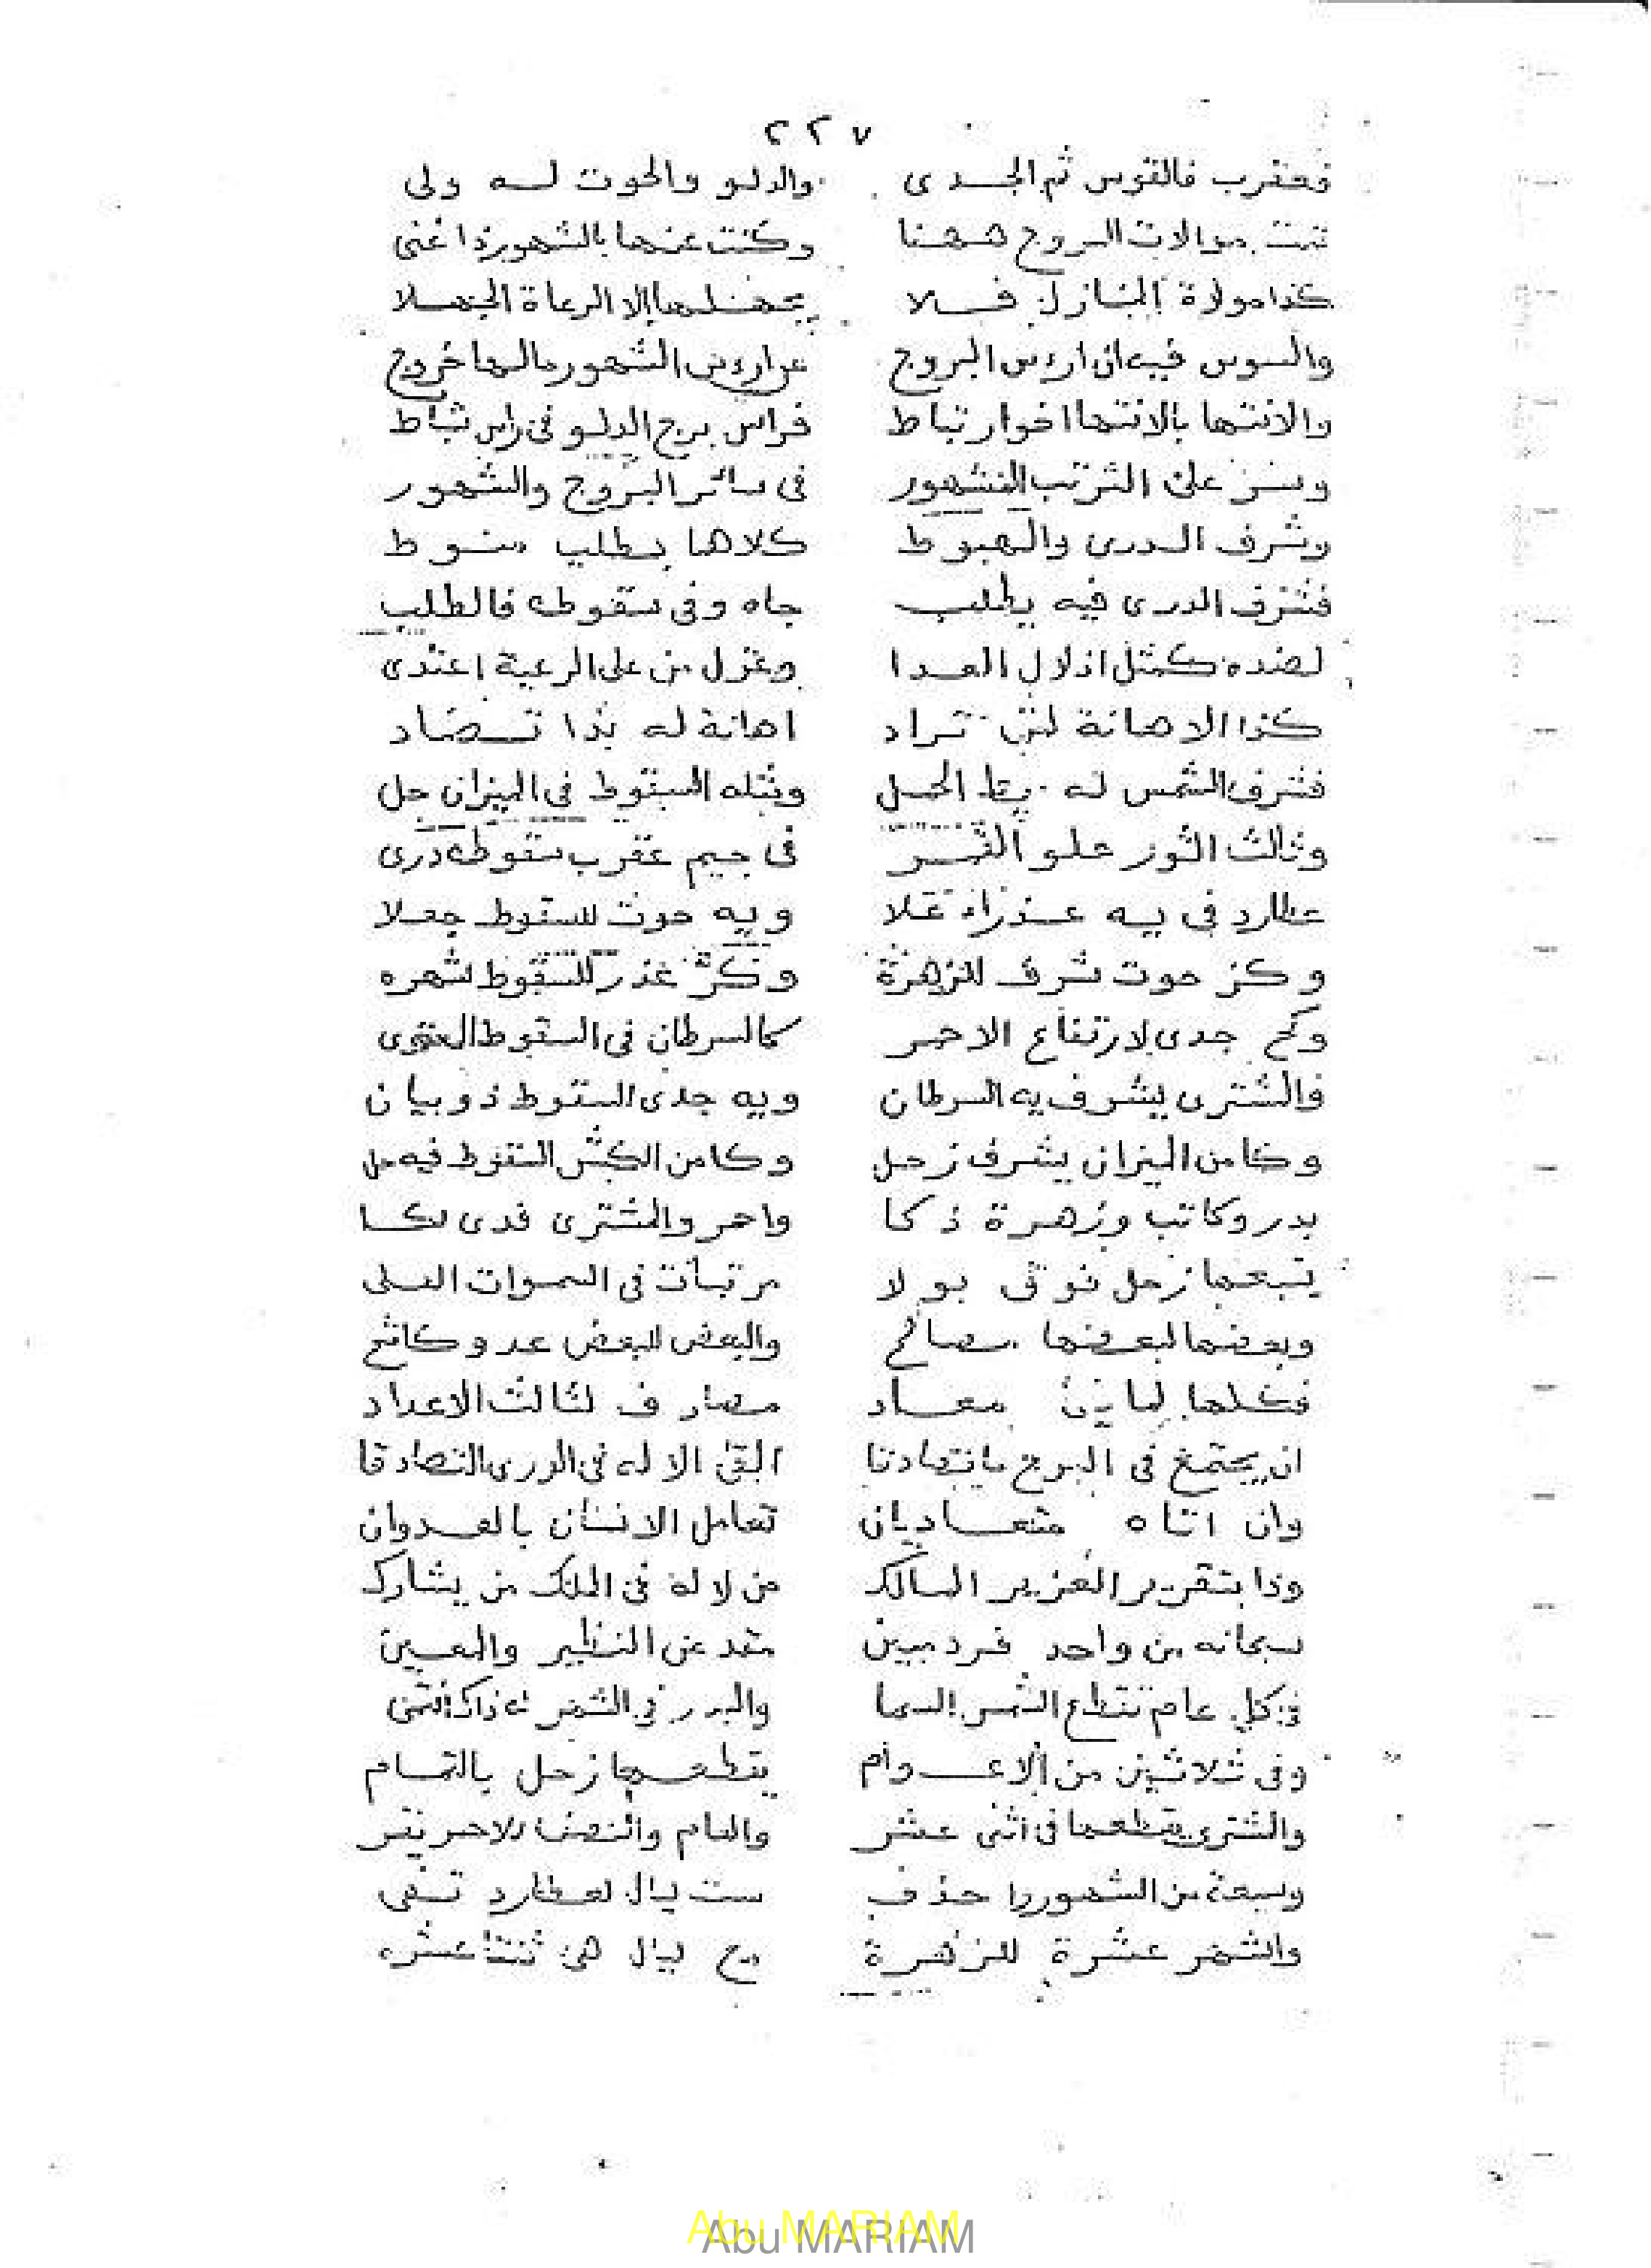 ٢٢٧
فعقرب فالقوس ثم الجدى والدلو والحوت له ولى
تمت موالات البروج ههنا وكنت عنها بالشهور ذا غنى
كذا مولاة المنازل فلا يجهلها الا الرعاة الجهلا
والسوس فيه ان ارءس البروج عن ارءس الشهور مالها خروج
والانتها بالانتها اخو ارتباط فراس برج الدلو فى راس شباط
وسر على الترتب المشهور فى سائر البروج والشهور
وشرف الدرى والهبوط كلاهما بطلب منوط
فشرف الدرى فيه يطلب جاه وفى سقوطه فالطلب
لضده كمثل اذلال العدا وعزل من على الرعية اعتدى
كذا الاهانة لمن تراد اهانة له بذا تضاد
فشرف الشمس له يط الحمل ومثله السقوط فى الميزان حل
وثالث الثور علو القمر فى جيم عقرب سقوطه درى
عطارد فى يه عذراء علا ويه حوت للسقوط جعلا
وكز حوت شرف للزهرة وكز عذر للسقوط شهره
وكح جدى لارتفاع الاحمر كالسرطان فى السقوط
فالمشترى يشرف يه السرطان ويه جدى السقوط ذو بيان
وكا من الميزان يشرف زحل وكا من الكبش السقوط فيه حل
بدر وكاتب وزهرة ذكا واحمر والمشترى فدى لكا
يتبعها زحل فوق بولا مرتبات فى السموات العلى
وبعضها لبعضها مصالح والبعض للبعض عدو كاشح
فكلها لما معاد مصادف لثالث الاعداد
ان يجتمع فى البرج ما تصادقا القى الاله فى الورى التصادقا
وان اتاه متعاديان تعامل الانسان بالعدوان
وذا بتقدير العزيز المالك من لا له فى الملك من يشارك
سبحانه من واحد فرد مبين عن النظير والمعين
فى كل عام تقطع الشمس السما والبدر فى الشهر له ذاك انتمى
وفى ثلاثين من الاعوام يقطعها زحل بالتمام
والمشترى يقطعها فى اثنى عشر والعام والنصف للاحمر
وسبعة من الشهور حذف ست ليال لعطارد تفى
والشهر عشرة للزهرة مع ليال هى ثنتا عشره
Abu MARIAM